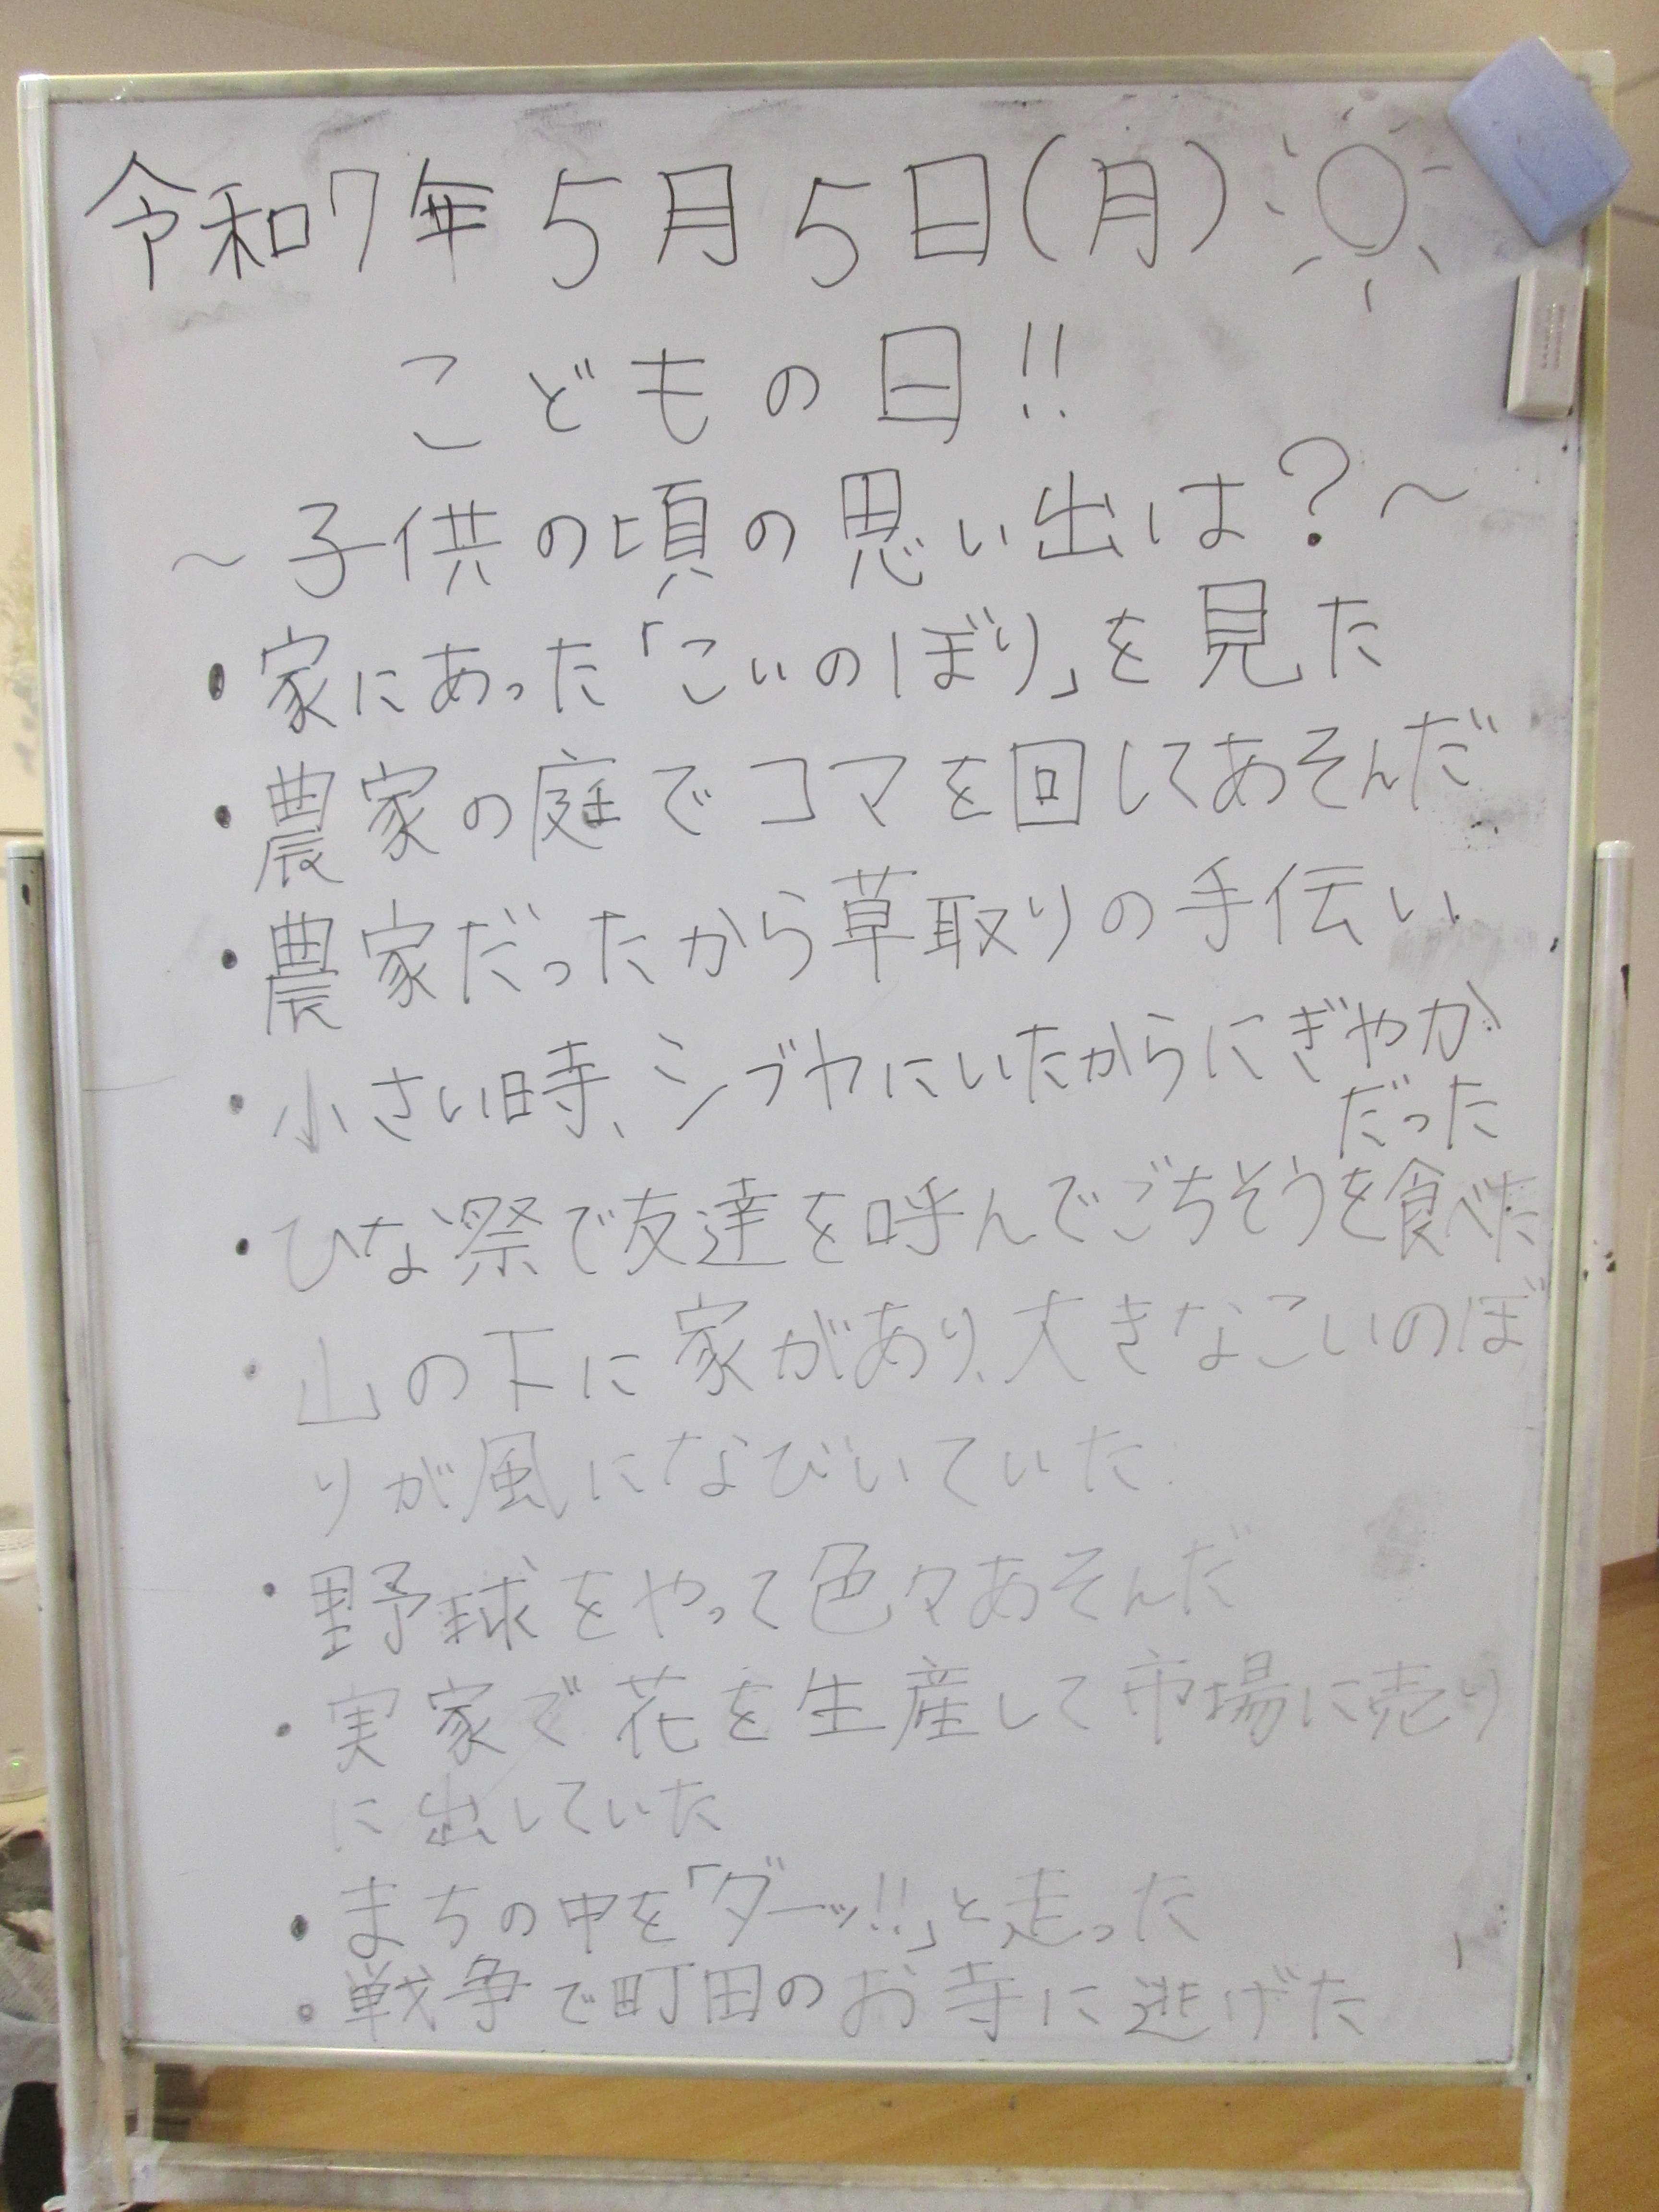 令和7年5月5日(月)
こどもの日!!
~子供の頃の思い出は?~
・家にあった「こいのぼり」を見た
・農家の庭でコマを回してあそんだ
・農家だったから草取りの手伝い
・小さい時、シブヤにいたからにぎやか
だった
・ひな祭で友達を呼んでごちそうを食べた
・山の下に家があり、大きなこいのぼ
りが風になびいていた
・野球をやって色々あそんだ
・実家で花を生産して市場に売り
に出していた
・まちの中を「ダーッ!!」と走った
・戦争で町田のお寺に逃げた